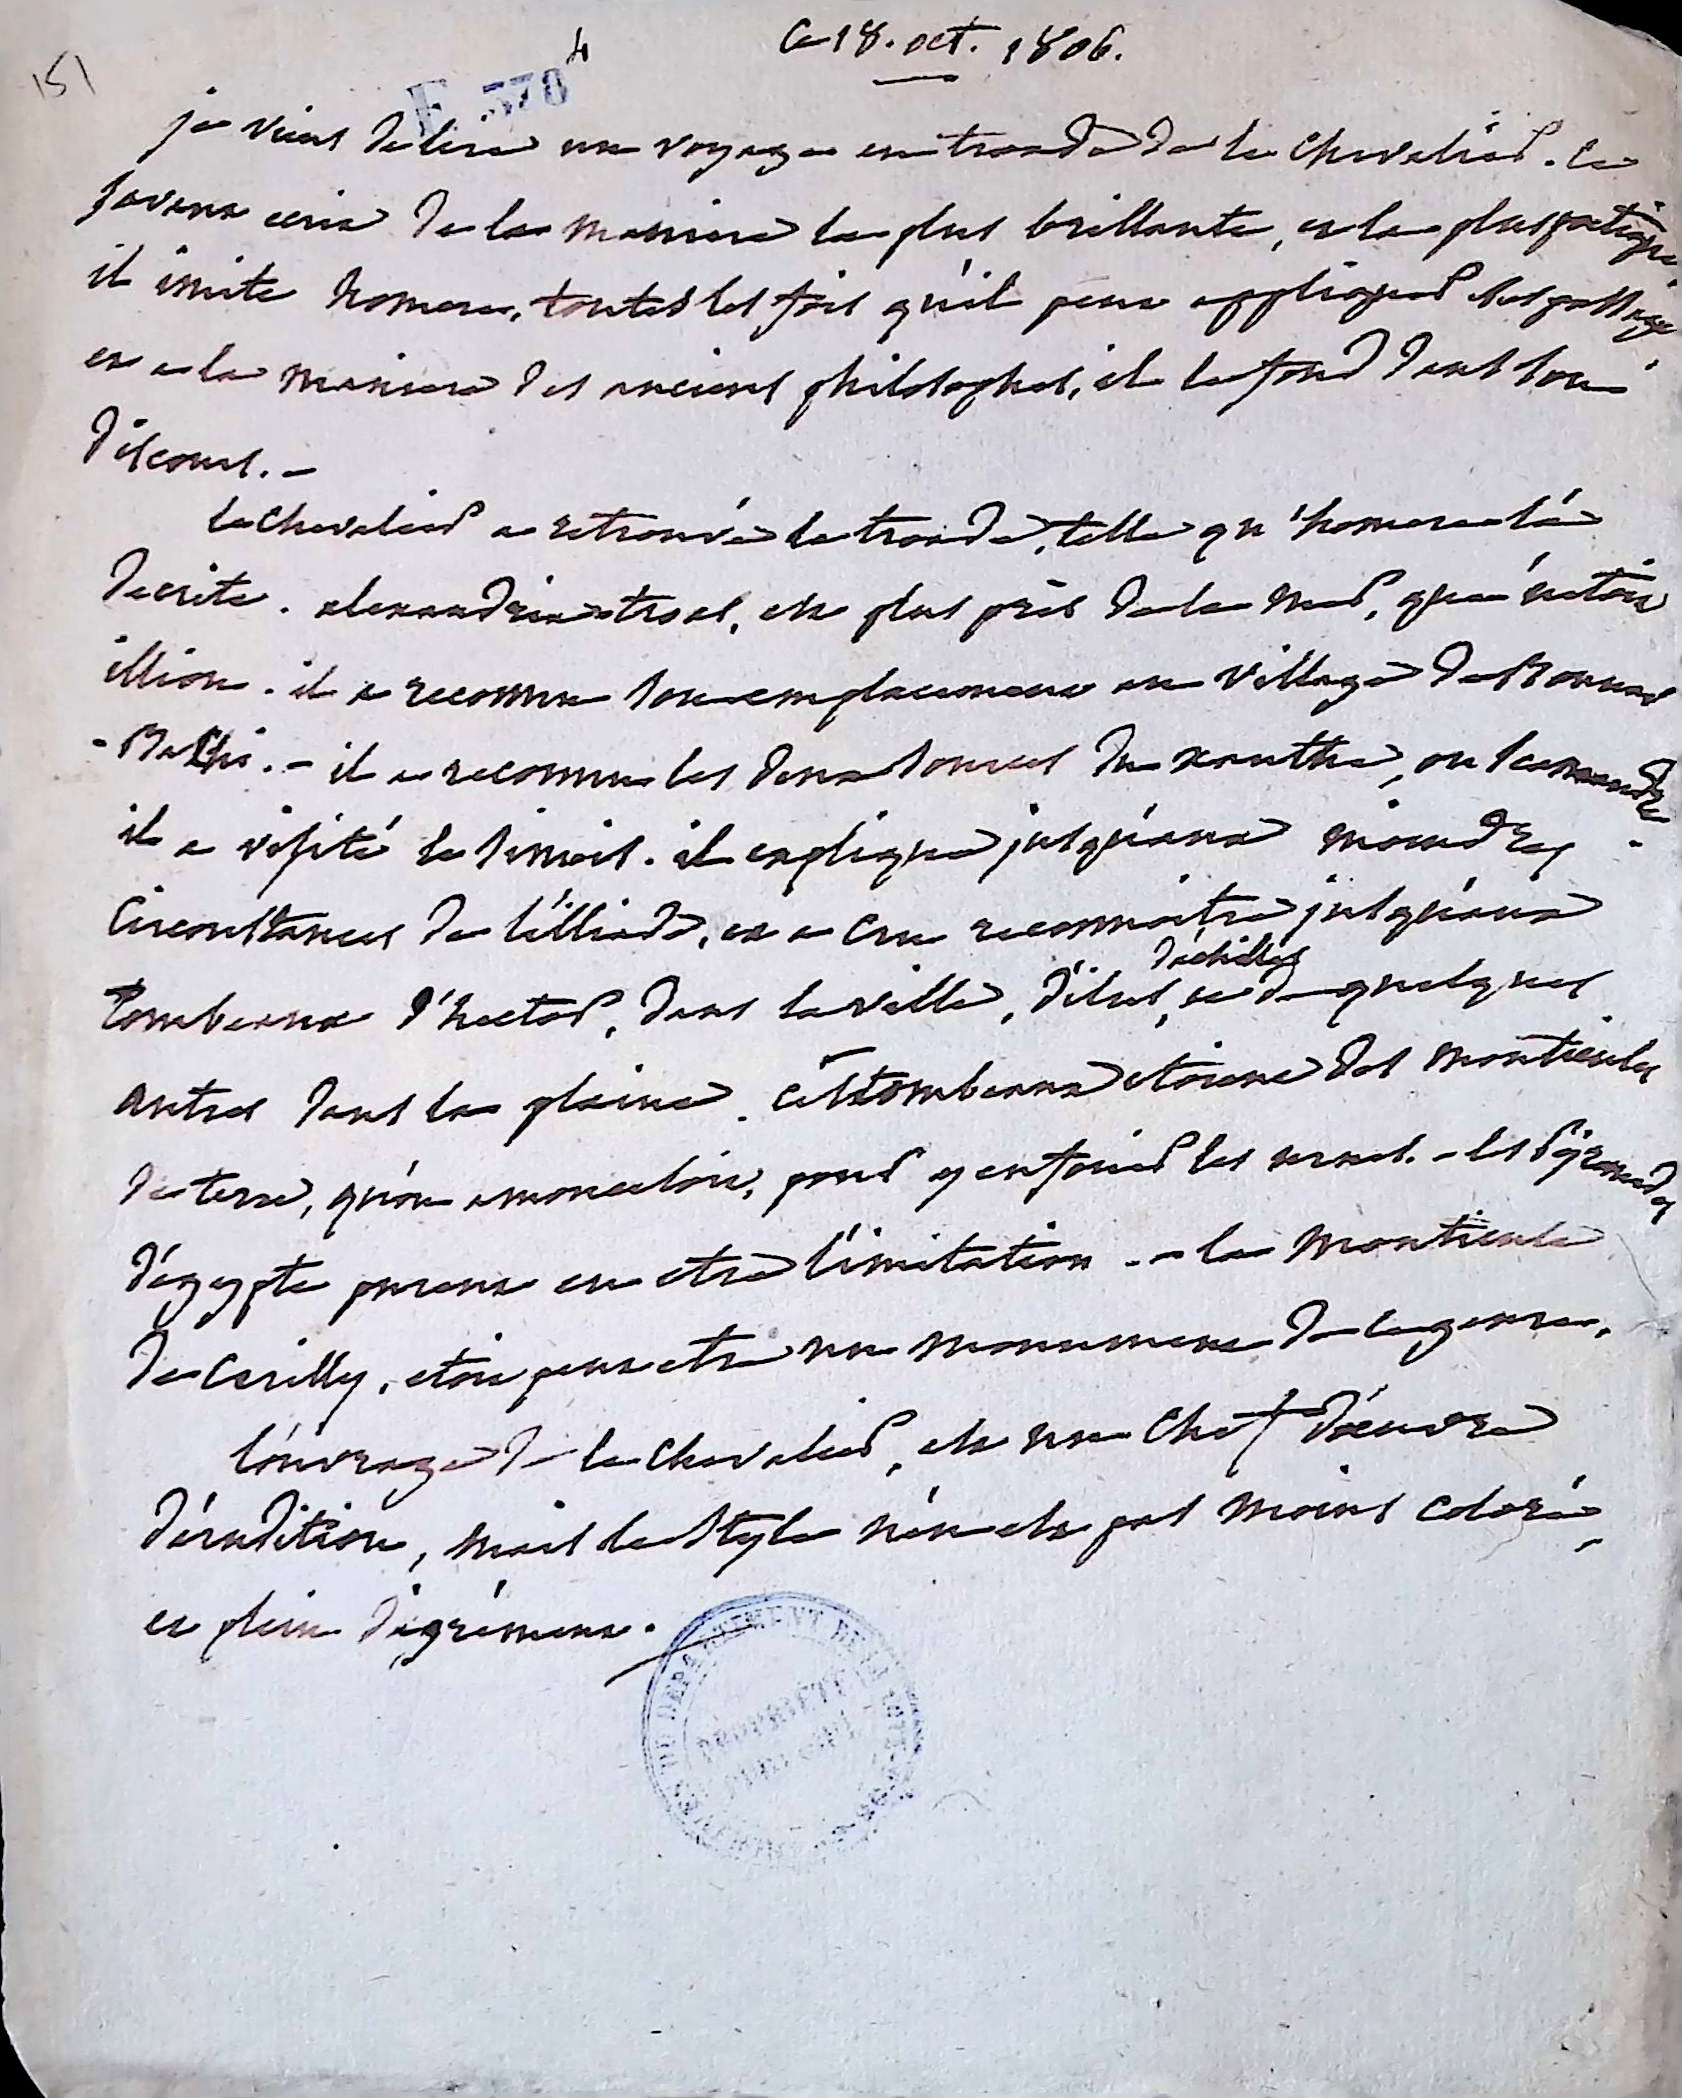 ce 18. oct. 1806.
151
4
F 370
je viens de lire un voyage en troade de le chevalier. ce
savant ecrit de la maniere la plus brillante, et la plus poetique
il imite homere, toutes les fois qu'il peut appliquer ses passages
et a la maniere des anciens philosophes, il le fond dans son
discours. -
le chevalier a retrouvé la troade, telle qu'homere l'a
decrite. alexandria troas, est plus près de la mer, que n'etoit
illion. il a reconnu son emplacement au village de Bounar
- Bachi. - il a reconnu les deux sources du xanthe, ou scamandre.
il a visité le simois. il explique jusqu'aux moindres
circonstances de l'illiade, et a cru reconnoitre jusqu'aux
d'achilles
tombeaux d'hector, dans la ville, d'ilus, et de quelques
autres dans la plaine. ces tombeaux etoient des monticules
de terre, qu'on amonceloit, pour y enfouir les urnes. - les pyramides
d'egypte purent en etre l'imitation. - le monticule
de Cerilly, etoit peut etre un monument de ce genre.
l'ouvrage de le chevalier, est un chef d'oeuvre
d'erudition, mais le style n'en est pas moins coloré,
et plein d'agrément.
DU DEPARTEMENT DE LA
PROPRIETE